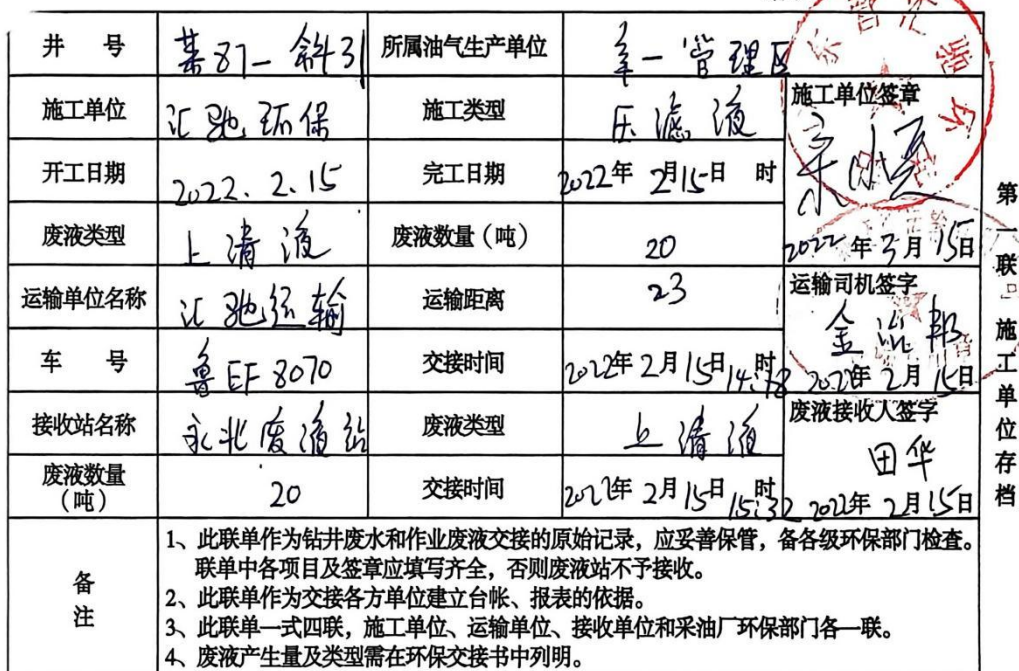 井 号 某87-斜31 所属油气生产单位 辛一管理区
施工单位 汇驰环保 施工类型 压滤液 施工单位签章
开工日期 2022.2.15 完工日期 2022年 2月15日 时
废液类型 上清液 废液数量(吨) 20 2022年3月15日
运输单位名称 汇驰运输 运输距离 23 运输司机签字
车 号 鲁EF8070 交接时间 2022年2月15日14:18时 2022年2月15日
接收站名称 永北废液站 废液类型 上清液 废液接收人签字
田华
废液数量(吨) 20 交接时间 2022年2月15日15:32时 2022年2月15日
备注
1、此联单作为钻井废水和作业废液交接的原始记录,应妥善保管,备各级环保部门检查。
联单中各项目及签章应填写齐全,否则废液站不予接收。
2、此联单作为交接各方单位建立台帐、报表的依据。
3、此联单一式四联,施工单位、运输单位、接收单位和采油厂环保部门各一联。
4、废液产生量及类型需在环保交接书中列明。
第一联 施工单位存档